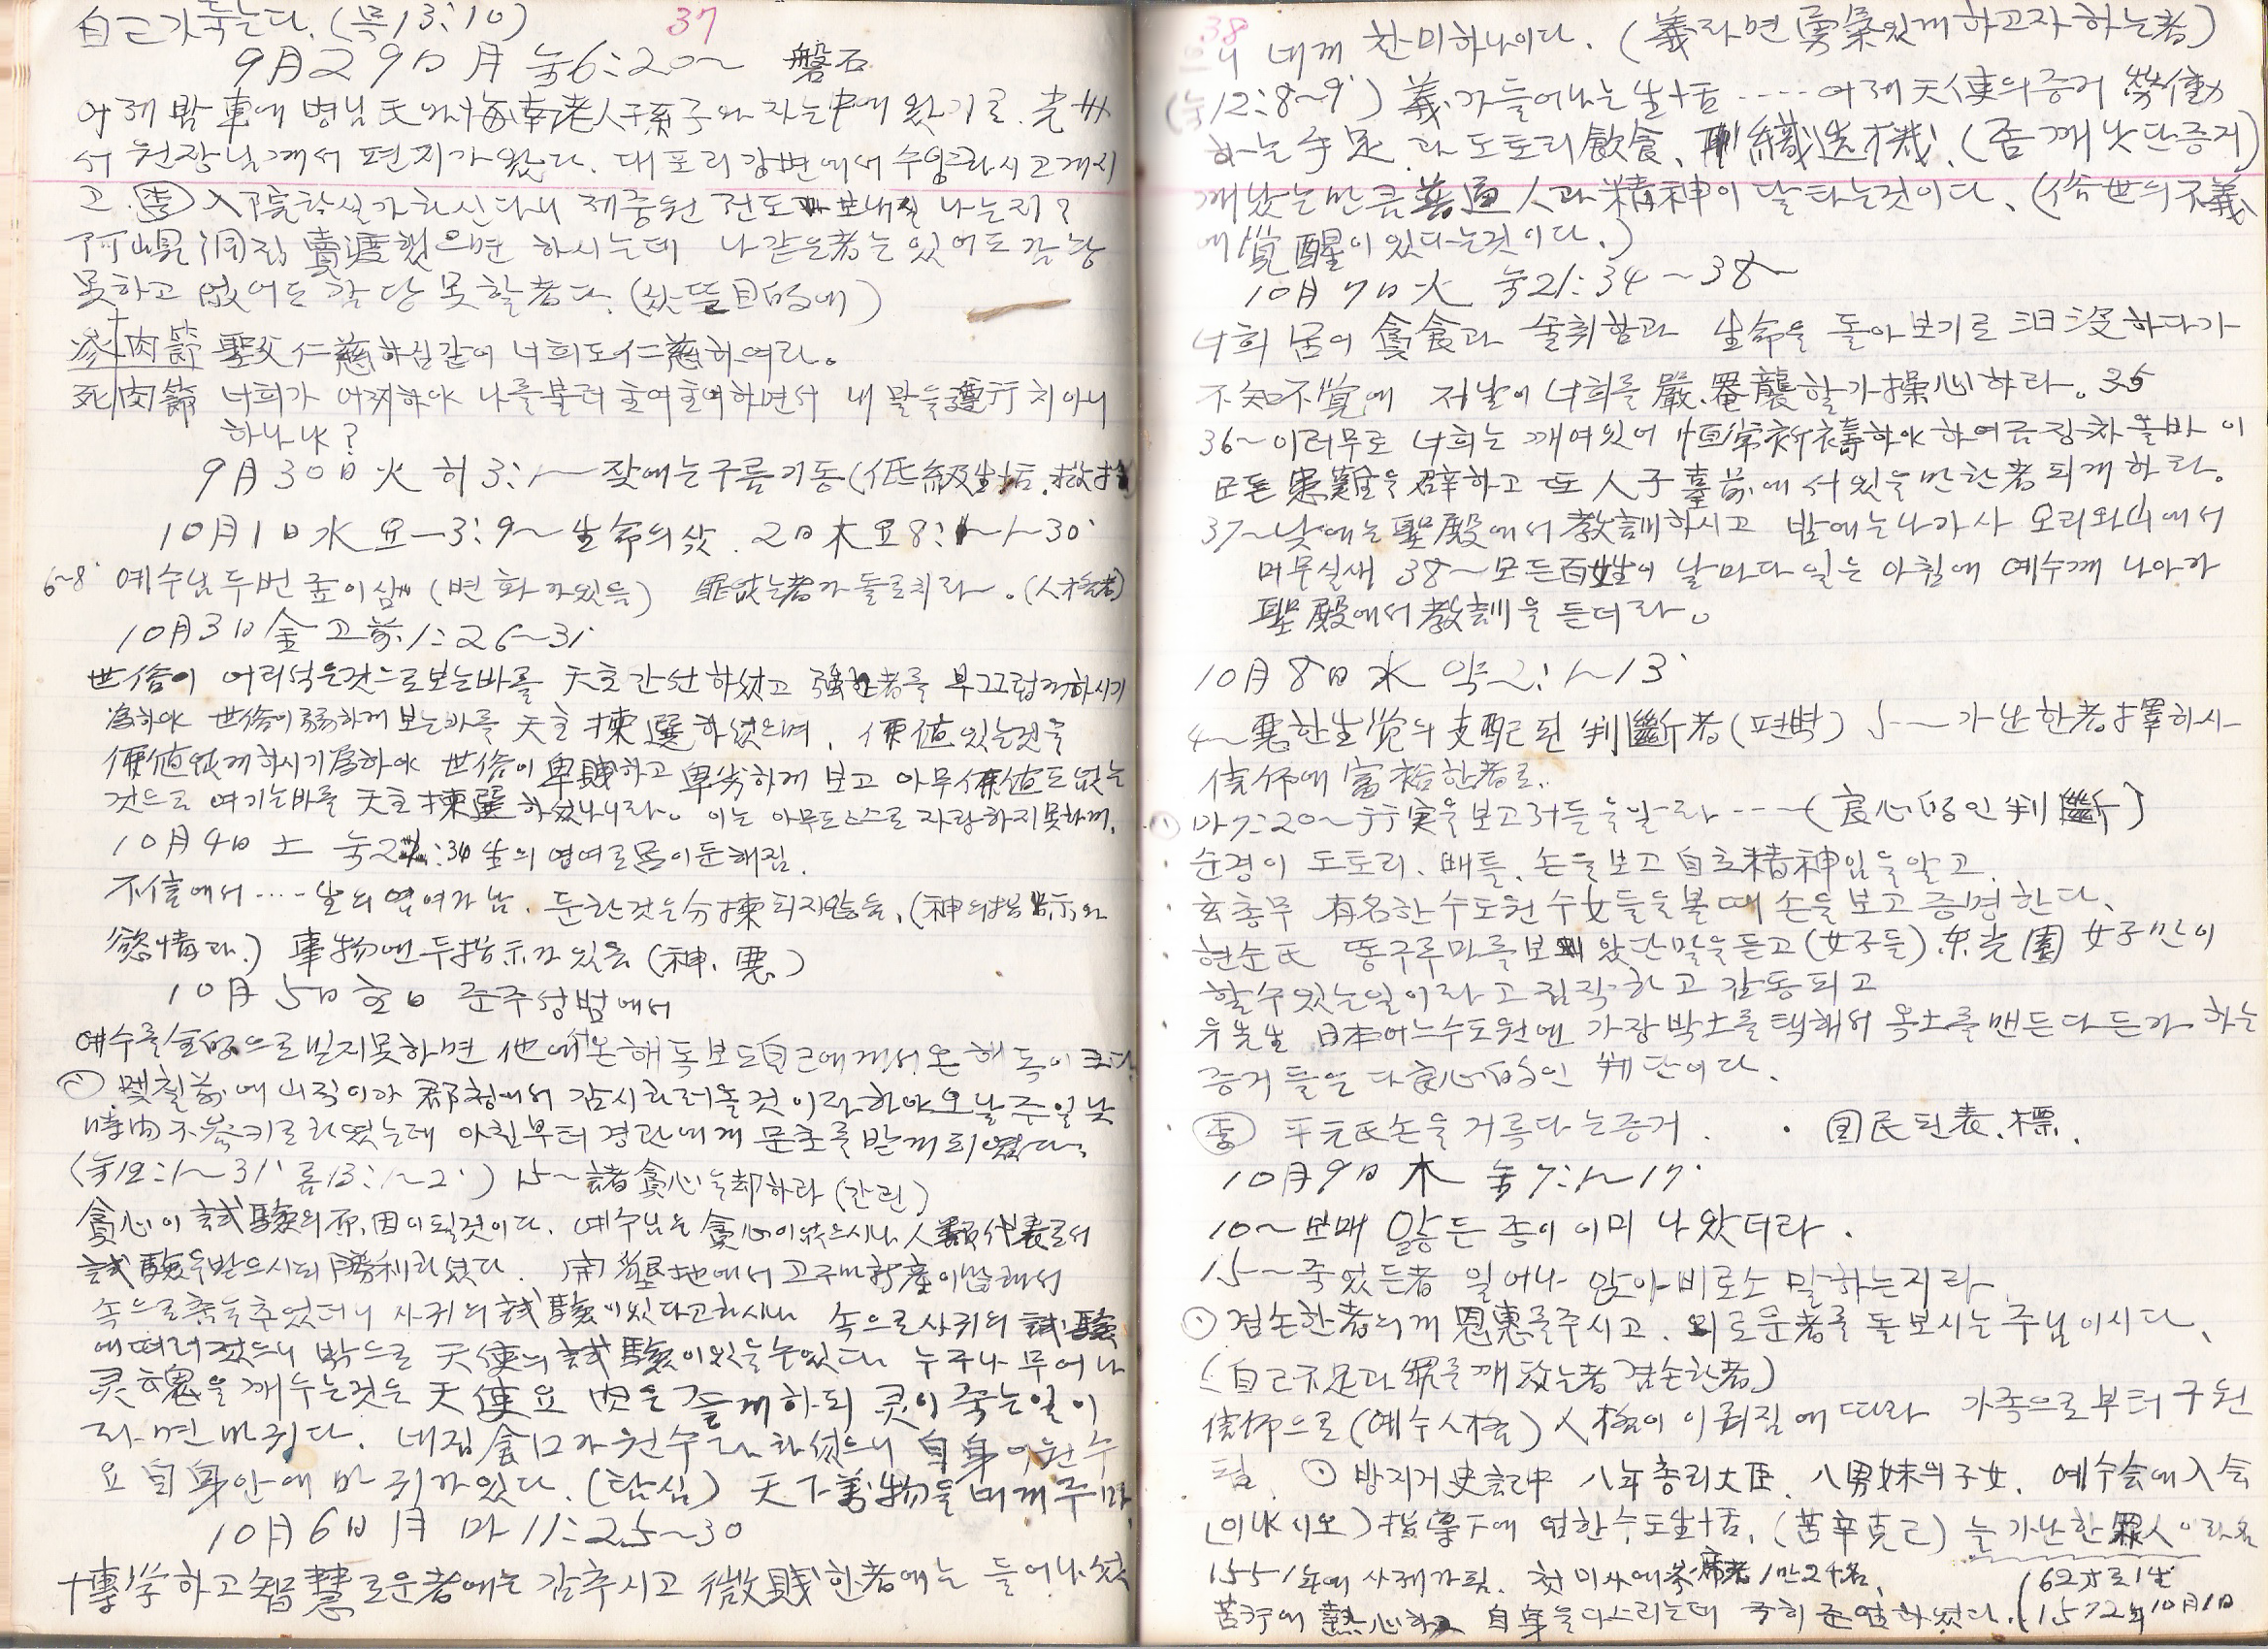 自己가 죽는다. (목 13:10)
37
9月29日 月 눅6:20~ 磐石
어제 밤 車에 병님氏와 海南老人 孫子와 자는中에 왔기로. 光州
서 원장님께서 편지가 왔다. 대포리 강변에서 수양하시고 계시
고. 入院하실가 하신다니 제중원 전도 나는지?
洞집 賣渡했으면 하시는데 나같은者는 있어도 감당
못하고 없어도 감당 못할者다. (目的에)
肉節 聖父 仁慈하심같이 너희도 仁慈하여라。
死肉節 너희가 어찌하야 나를 불러 主여主여하면서 내 말을 遵行치 아니
하나냐?
9月30日 火 히3:1~ 낮에는 구름기둥 (低級生活.
10月1日 水 요一3:9~ 生命의 삿. 2日 木 요8:1~30
6~8 예수님 두번 (변화가 있음) 罪없는者가 돌로치라。(人格者)
10月3日 金 고前1:26~31
世俗이 어리석은것으로 보는바를 天主 간선하셨고 强한者를 부끄럽게하시기
爲하야 世俗이 弱하게 보는바를 天主 揀選하셨으며, 価値있는것을
価値없게 하시기 爲하야 世俗이 卑賤하고 卑劣하게 보고 아무 価値도 없는
것으로 여기는바를 天主 揀選하셨나니라。 이는 아무도 스스로 자랑하지 못하게.
10月4日 土 눅21:34 生의 염여로 맘이 둔해짐.
不信에서 .... 生의 염여가 남. 둔한것은 分揀되지않음. (神의 指示와
慾情다.) 事物엔 두 指示가 있음 (神, 悪)
10月5日 主日 준주성범에서
예수를 全的으로 믿지못하면 他에서온 해독보다 自己에게서 온 해독이 크다.
몇칠前에 山직이가 郡청에서 감시하러 올것이라 하야 오날 주일 낮
時間 不參키로 하였는데 아침부터 경관에게 문초를 받게 되였다.
(눅12:1~31 롬13:1~2) 15~ 諸貪心을 却하라 (간린)
貪心이 試驗의 原因이 될것이다. 예수님은 貪心이 없으시나 人類代表로서
試驗을 받으시되 勝利하셨다. 開墾地에서 고구마
속으로 춤을 추었더니 사귀의 試驗이 있다고 하시나 속으로 사귀의 試驗
에 떠러젔으니 밖으로 天使의 試驗이 있을수 있다. 누구나 무어나
灵魂을 깨우는것은 天使요 肉은 즐게하되 灵이 죽는일이
라면 마귀다. 네집 食口가 원수라 하셨으니 自身이 원수
요 自身안에 마귀가 있다. (탐심) 天下萬物을 매께주마
10月6日 月 마11:25~30
博学하고 智慧로운者에는 감추시고 微賤한者에는 들어나셨
38
으니 네께 찬미하나이다. (義라면 勇氣있게 하고자 하는者)
(눅12:8~9) 義가 들어나는 生活 .... 어제 天使의 증거 勞働
하는 手足과 도토리飲食, 織造機. (좀 깨낫단 증거)
깨났는만큼 普通人과 精神이 달타는것이다. (俗世의 不義
에 覚醒이 있다는것이다.)
10月7日 火 눅21:34~38
너희 맘이 貪食과 술취함과 生命을 돌아보기로 汨没하다가
不知不覚에 저날이 너희를 嚴. 罨襲할가 操心하라。35
36~ 이러무로 너희는 깨여있어 恒常祈禱하야 하여금 장차 올바 이
모든 患難을 避하고 또 人子臺前에 서있을만한者 되게하라。
37~ 낮에는 聖殿에서 教訓하시고 밤에는 나가사 오리와山에서
머무실새 38~ 모든百姓이 날마다 일는 아침에 예수께 나아가
聖殿에서 教訓을 듣더라。
10月8日 水 약2:1~13
4~ 悪한生覚의 支配된 判斷者 (편벽) 5~ 가난한者 擇하시-
信仰에 富裕한者로.
마7:20~ 行実을 보고 저들을 알라 --- (良心的인 判斷)
순경이 도토리. 배틀. 손을 보고 自主精神임을 알고.
玄총무 有名한 수도원 수女들을 볼때 손을 보고 증명한다.
현순氏 똥구루마를 보고 왔단말을 듣고 (女子들) 东光園 女子만이
할수 있는일이라고 짐작하고 감동되고
우先生 日本어느 수도원엔 가장 박土를 택해서 옥土를 맨든다든가 하는
증거들은 다 良心的인 判단이다.
平元氏 손을 거룩다는 증거. · 国民된 表.標.
10月9日 木 눅7:1~17
10~ 보매 앓튼 종이 이미 나왔더라.
15~ 죽었든者 일어나 앉아 비로소 말하는지라
겸손한者의게 恩惠를 주시고. 외로운者를 돌보시는 주님이시다.
(自己不足과 罪를 깨닷는者 겸손한者)
信仰으로 (예수人格) 人格이 이뤄짐에 따라 가족으로부터 구원
됨. 방지거史記中 八年총리大臣. 八男妹의 子女. 예수会에 入会
(이냐시오) 指導下에 엄한 수도生活. (苦辛克己) 늘 가난한 罪人이라名
1551年에 사제가됨. 첫미사에 參席者 1만2千名.
苦行에 熱心하고 自身을 다스리는데 극히 준엄하셨다. (62才로1生
1572年10月1日